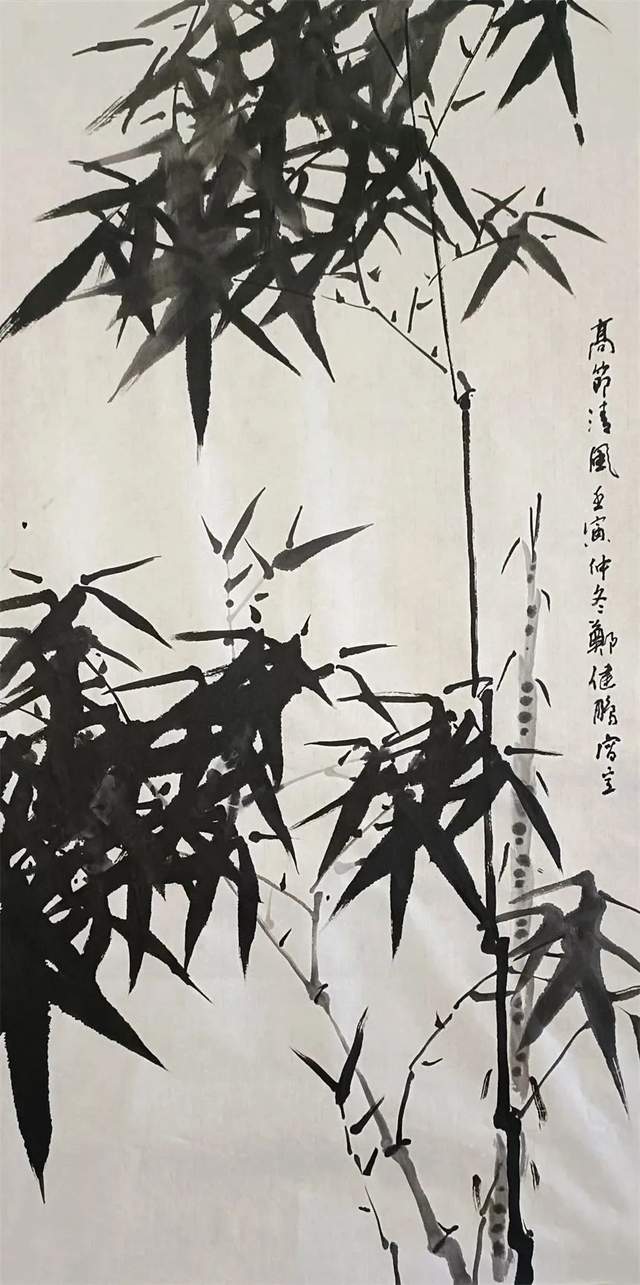 高節清風壬寅仲冬鄭健鵬寫意